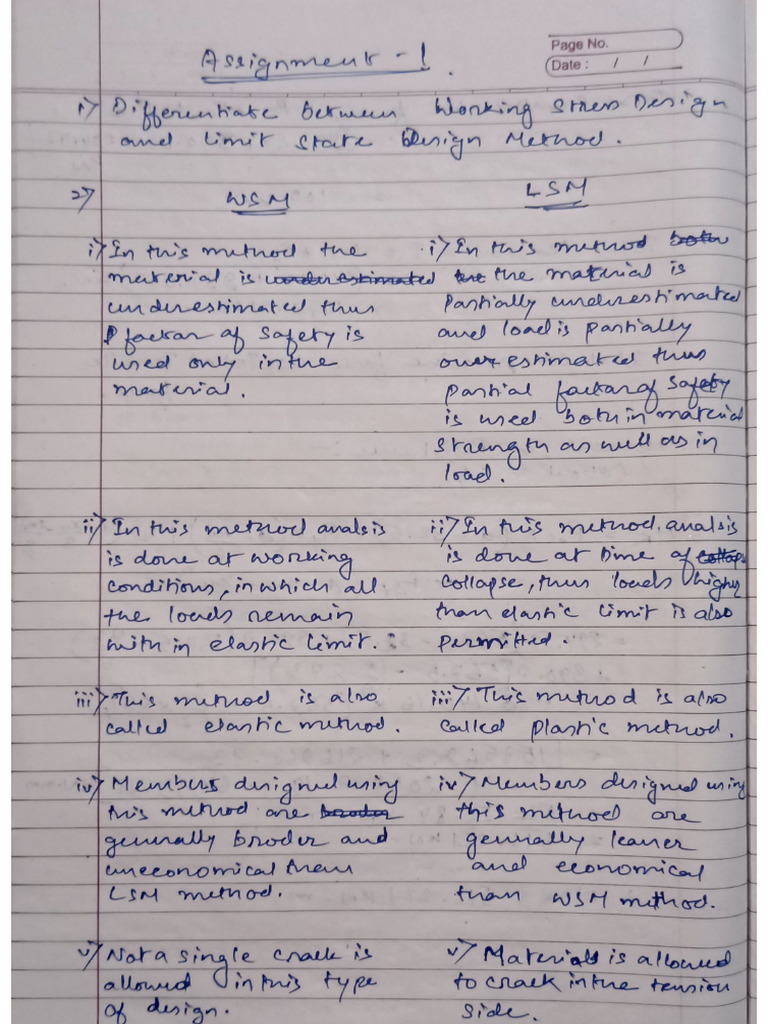 Assignment - 1.
Page No.
Date : / /
1) Differentiate between Working Stress Design
and Limit State Design Method.
2) WSM LSM
i) In this method the
material is underestimated
underestimated thus
factor of safety is
used only in the
material.
i) In this method both
the the material is
Partially underestimated
and load is partially
over estimated thus
partial factor of safety
is used both in material
strength as well as in
load.
ii) In this method analsis
is done at working
conditions, in which all
the loads remain
with in elastic limit.
ii) In this method analsis
is done at time of collaps
collapse, thus loads higher
than elastic limit is also
permitted.
iii) This method is also
called elastic method.
iii) This method is also
called plastic method.
iv) Members designed using
this method are broder
generally broder and
uneconomical then
LSM method.
iv) Members designed using
this method are
generally leaner
and economical
than WSM method.
v) Not a single crack is
allowed in this type
of design.
v) Material is allowed
to crack in the tension
side.